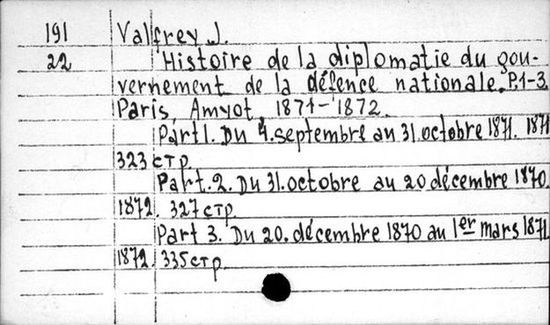 191 Valfrey J.
22 Histoire de la diplomatie du gou-
vernement de la défence nationale. P.1-3.
Paris, Amyot, 1871-1872.
Part 1. Du 4. septembre au 31. octobre 1871. 1871
323 стр.
Part. 2. Du 31. octobre au 20 décembre 1870.
1872. 327 стр.
Part 3. Du 20. décembre 1870 au 1er mars 1871.
1872. 335 стр.